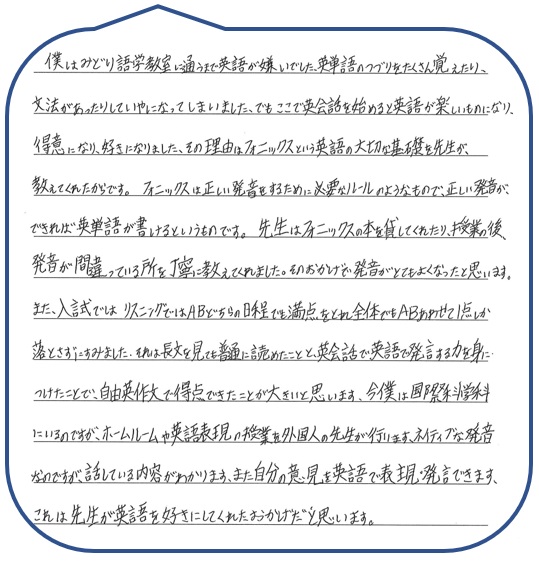 僕はみどり語学教室に通うまで英語が嫌いでした、英単語のつづりをたくさん覚えたり、
文法があったりしていやになってしまいました、でもここで英会話を始めると英語が楽しいものになり、
得意になり、好きになりました、その理由はフォニックスという英語の大切な基礎を先生が、
教えてくれたからです。フォニックスは正しい発音をするために必要なルールのようなもので、正しい発音が、
できれば英単語が書けるというものです。先生はフォニックスの本を貸してくれたり、授業の後、
発音が間違っている所を丁寧に教えてくれました。そのおかげで発音がとてもよくなったと思います。
また、入試では リスニングではABどちらの日程でも満点をとれ全体でもABあわせて1点しか
落とさずにすみました、それは長文を見ても普通に読めたことと、英会話で英語で発言する力を身に
つけたことで、自由英作文で得点できたことが大きいと思います、今僕は国際系科学科
にいるのですが、ホームルームや英語表現の授業を外国人の先生が行います、ネイティブな発音
なのですが、話している内容がわかります、また自分の意見を英語で表現・発言できます、
これは先生が英語を好きにしてくれたおかげだと思います。